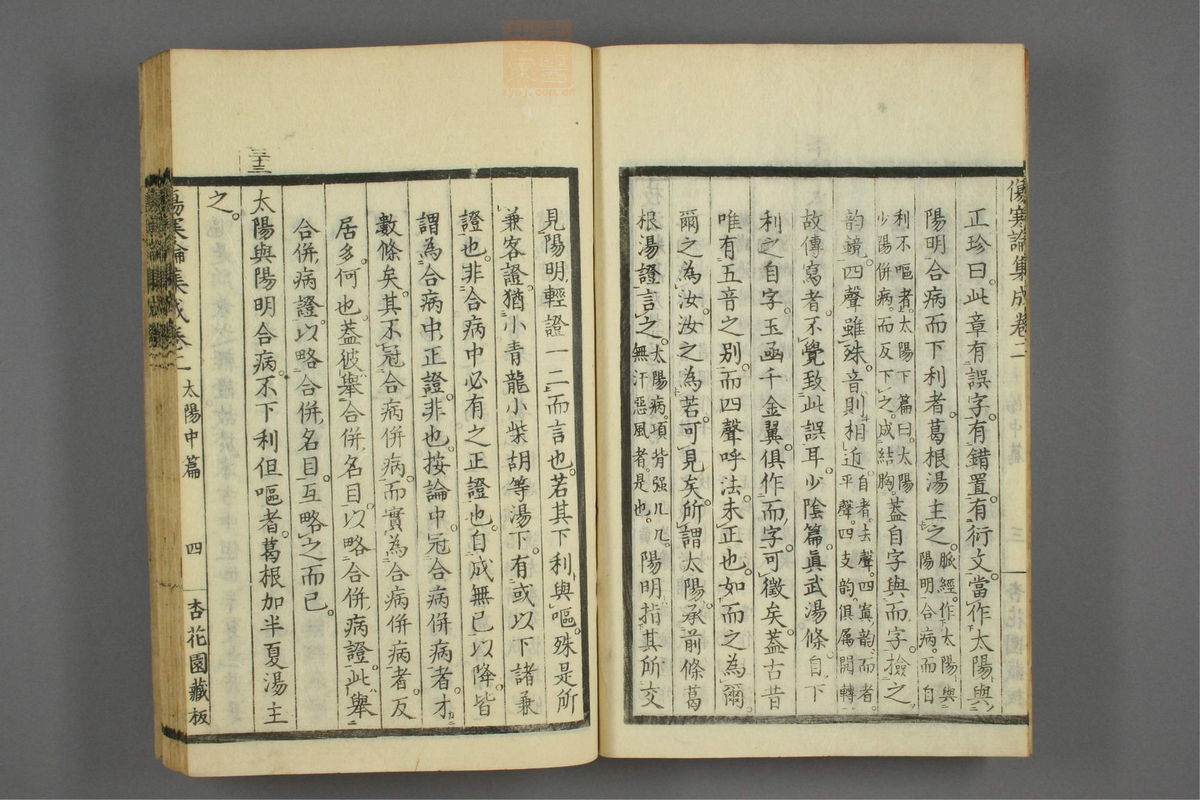 傷寒論集成卷二
正珍曰。此章有誤字。有錯置。有衍文。當作太陽與
陽明合病而下利者。葛根湯主之。脈經。作太陽與陽明合病。而自
利不嘔者。太陽下篇曰。太陽少陽併病。而反下之。成結胸。蓋自字與而字。撿之
韵鏡。四聲雖殊。音則相近。自者。去聲。四寘韵。而者。平聲。四支韵。俱屬開轉。
故傳寫者。不覺致此誤耳。少陰篇。眞武湯條。自下
利之自字。玉函千金翼。俱作而字。可徵矣。蓋古昔
唯有五音之別。而四聲呼法。未正也。如而之為爾。
爾之為汝。汝之為若。可見矣。所謂太陽。承前條葛
根湯證言之。太陽病。項背强几几。無汗惡風者。是也。陽明。指其所交
見陽明輕證一二而言也。若其下利與嘔。殊是所
兼客證。猶小青龍小柴胡等湯下。有或以下諸兼
證也。非合病中必有之正證也。自成無已以降。皆
謂為合病中正證。非也。按論中。冠合病併病者。才
數條矣。其不冠合病併病。而實為合病併病者。反
居多何也。蓋彼舉合併名目。以略合併病證。此舉
合併病證。以略合併名目。互略之而已。
太陽與陽明合病。不下利但嘔者。葛根加半夏湯主
之。
傷寒論集成卷二 太陽中篇 四 杏花園藏板
三十三